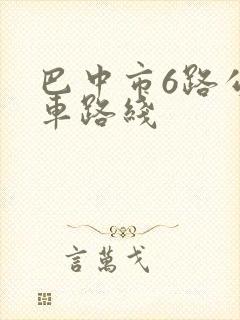 巴中市6路公
車路綫
言萬戈